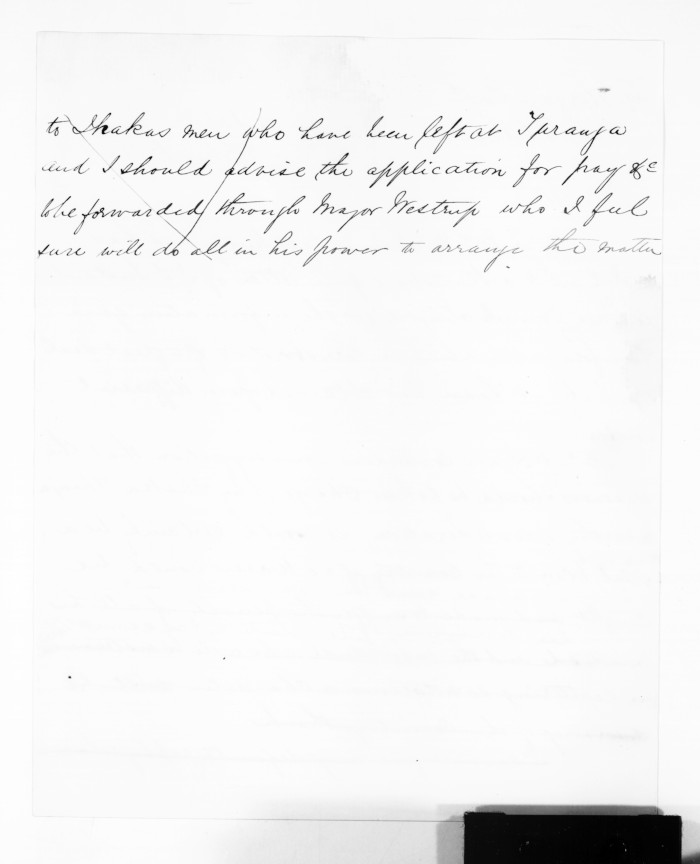 to Ihakas men who have been left at Turanga
and I should advise the application for pay &c
to be forwarded through Major Westrup who I feel
sure will do all in his power to arrange the matter